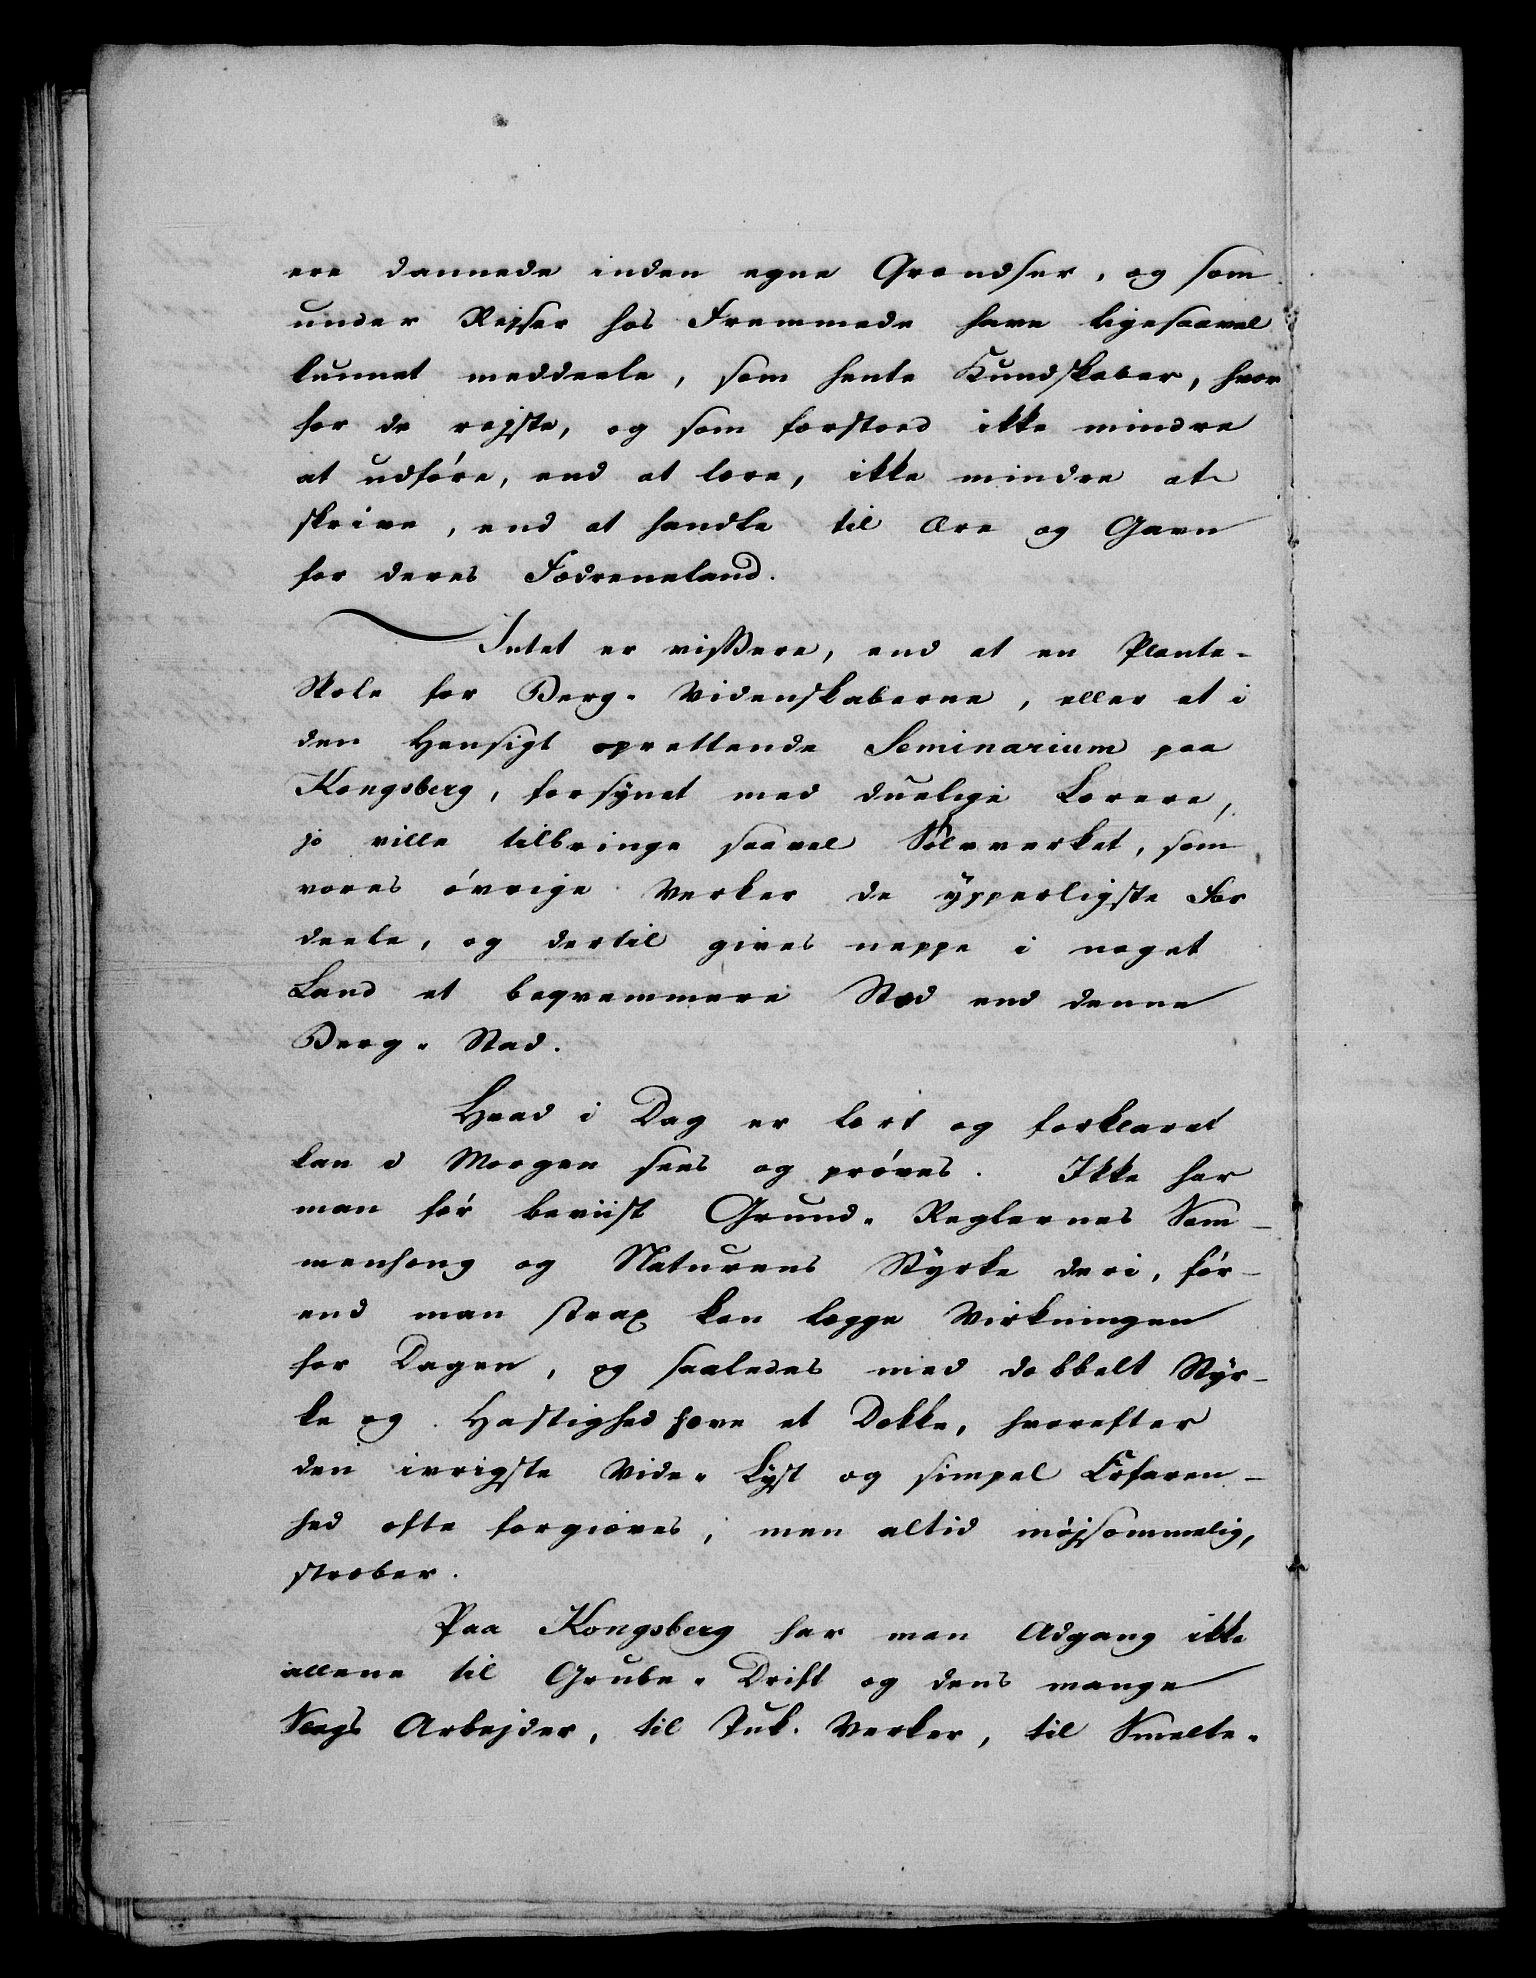 ere dannede inden egne Grændser, og som
under Rejser hos Fremmede have ligesaavel
kunnet meddeele, som hente Kundskaber, hvor
for de rejste, og som forstoed ikke mindre
at udføre, end at lære, ikke mindre at
skrive, end at handle til Ære og Gavn
for deres Fædreneland.
Intet er vissere, end at en Plante-
Skole for Berg-Videnskaberne, eller et i
den Hensigt oprettende Seminarium paa
Kongsberg, forsynet med duelige Lærere,
jo ville tilbringe saavel Sølvverket, som
vores øvrige Verker de ypperligste For
deele, og dertil gives neppe i noget
Land et beqvemmere Stæd end denne
Berg-Stad.
Hvad i Dag er lært og forklaret
kan i Morgen sees og prøves. Ikke har
man før beviist Grund-Reglernes Sam-
menhæng og Naturens Styrke deri, før-
end man strax kan lægge Virkningen
for Dagen, og saaledes med dobbelt Styr-
ke og Hastighed hæve et Dække, hvorefter
den ivrigste Vide-Lyst og simpel Erfaren-
hed ofte forgiæves, men altid møjsommelig,
stræber.
Paa Kongsberg har man Adgang ikke
allene til Grube-Drift og dens mange
Slags Arbejder, til Puk-Verker, til Smelte-